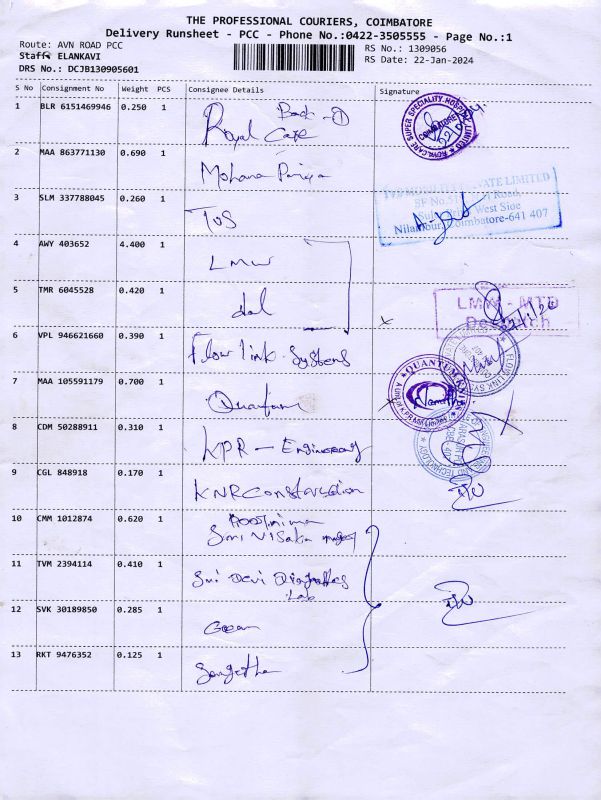 THE PROFESSIONAL COURIERS, COIMBATORE
Delivery Runsheet - PCC - Phone No.:0422-3505555 - Page No.:1
Route: AVN ROAD PCC
RS No.: 1309056
Staff: ELANKAVI
RS Date: 22-Jan-2024
DRS No.: DCJB130905601
S No Consignment No Weight PCS Consignee Details Signature
1 BLR 6151469946 0.250 1 Royal Care
2 MAA 863771130 0.690 1 Mohana Priya
3 SLM 337788045 0.260 1 TVS
4 AWY 403652 4.400 1 LMW
5 TMR 6045528 0.420 1 dol
6 VPL 946621660 0.390 1 Flow link Systems
7 MAA 105591179 0.700 1
8 CDM 50288911 0.310 1 KPR - Engineering
9 CGL 848918 0.170 1 KNR Constarction
10 CMM 1012874 0.620 1
11 TVM 2394114 0.410 1 Sri Devi Lab
12 SVK 30189850 0.285 1
13 RKT 9476352 0.125 1 Sangetha
COIMBATORE
PRIVATE LIMITED
SF No.
Road
West Side
Coimbatore-641 407
LMW - MTD
QUANTUM KNITS
Namitha